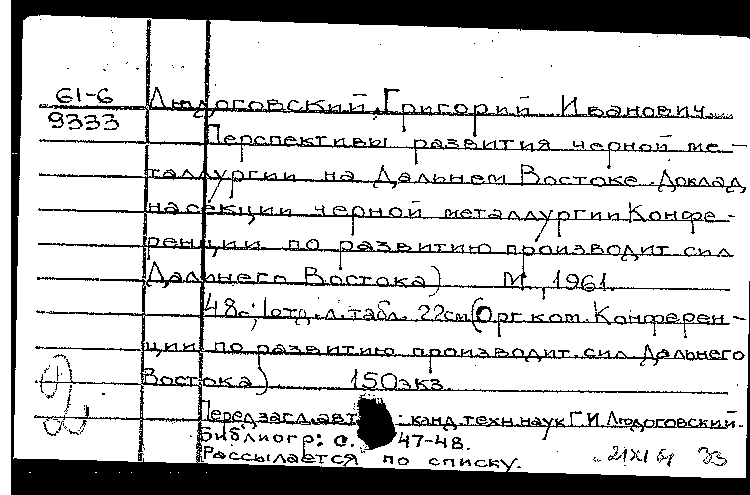 61-6
9333
Людоговский, Григорий Иванович.
Перспективы развития черной ме-
таллургии на Дальнем Востоке. Доклад
на секции черной металлургии Конфе-
ренции по развитию производит. сил
Дальнего Востока) М., 1961.
48с.; 1 отд. л. табл. 22см (Орг. ком. Конферен-
ции по развитию производит. сил Дальнего
Востока) 150 экз.
Перед загл. авт.: канд. техн. наук Г.И. Людоговский.
Библиогр: с. 47-48.
Рассылается по списку.
21XI 61 33